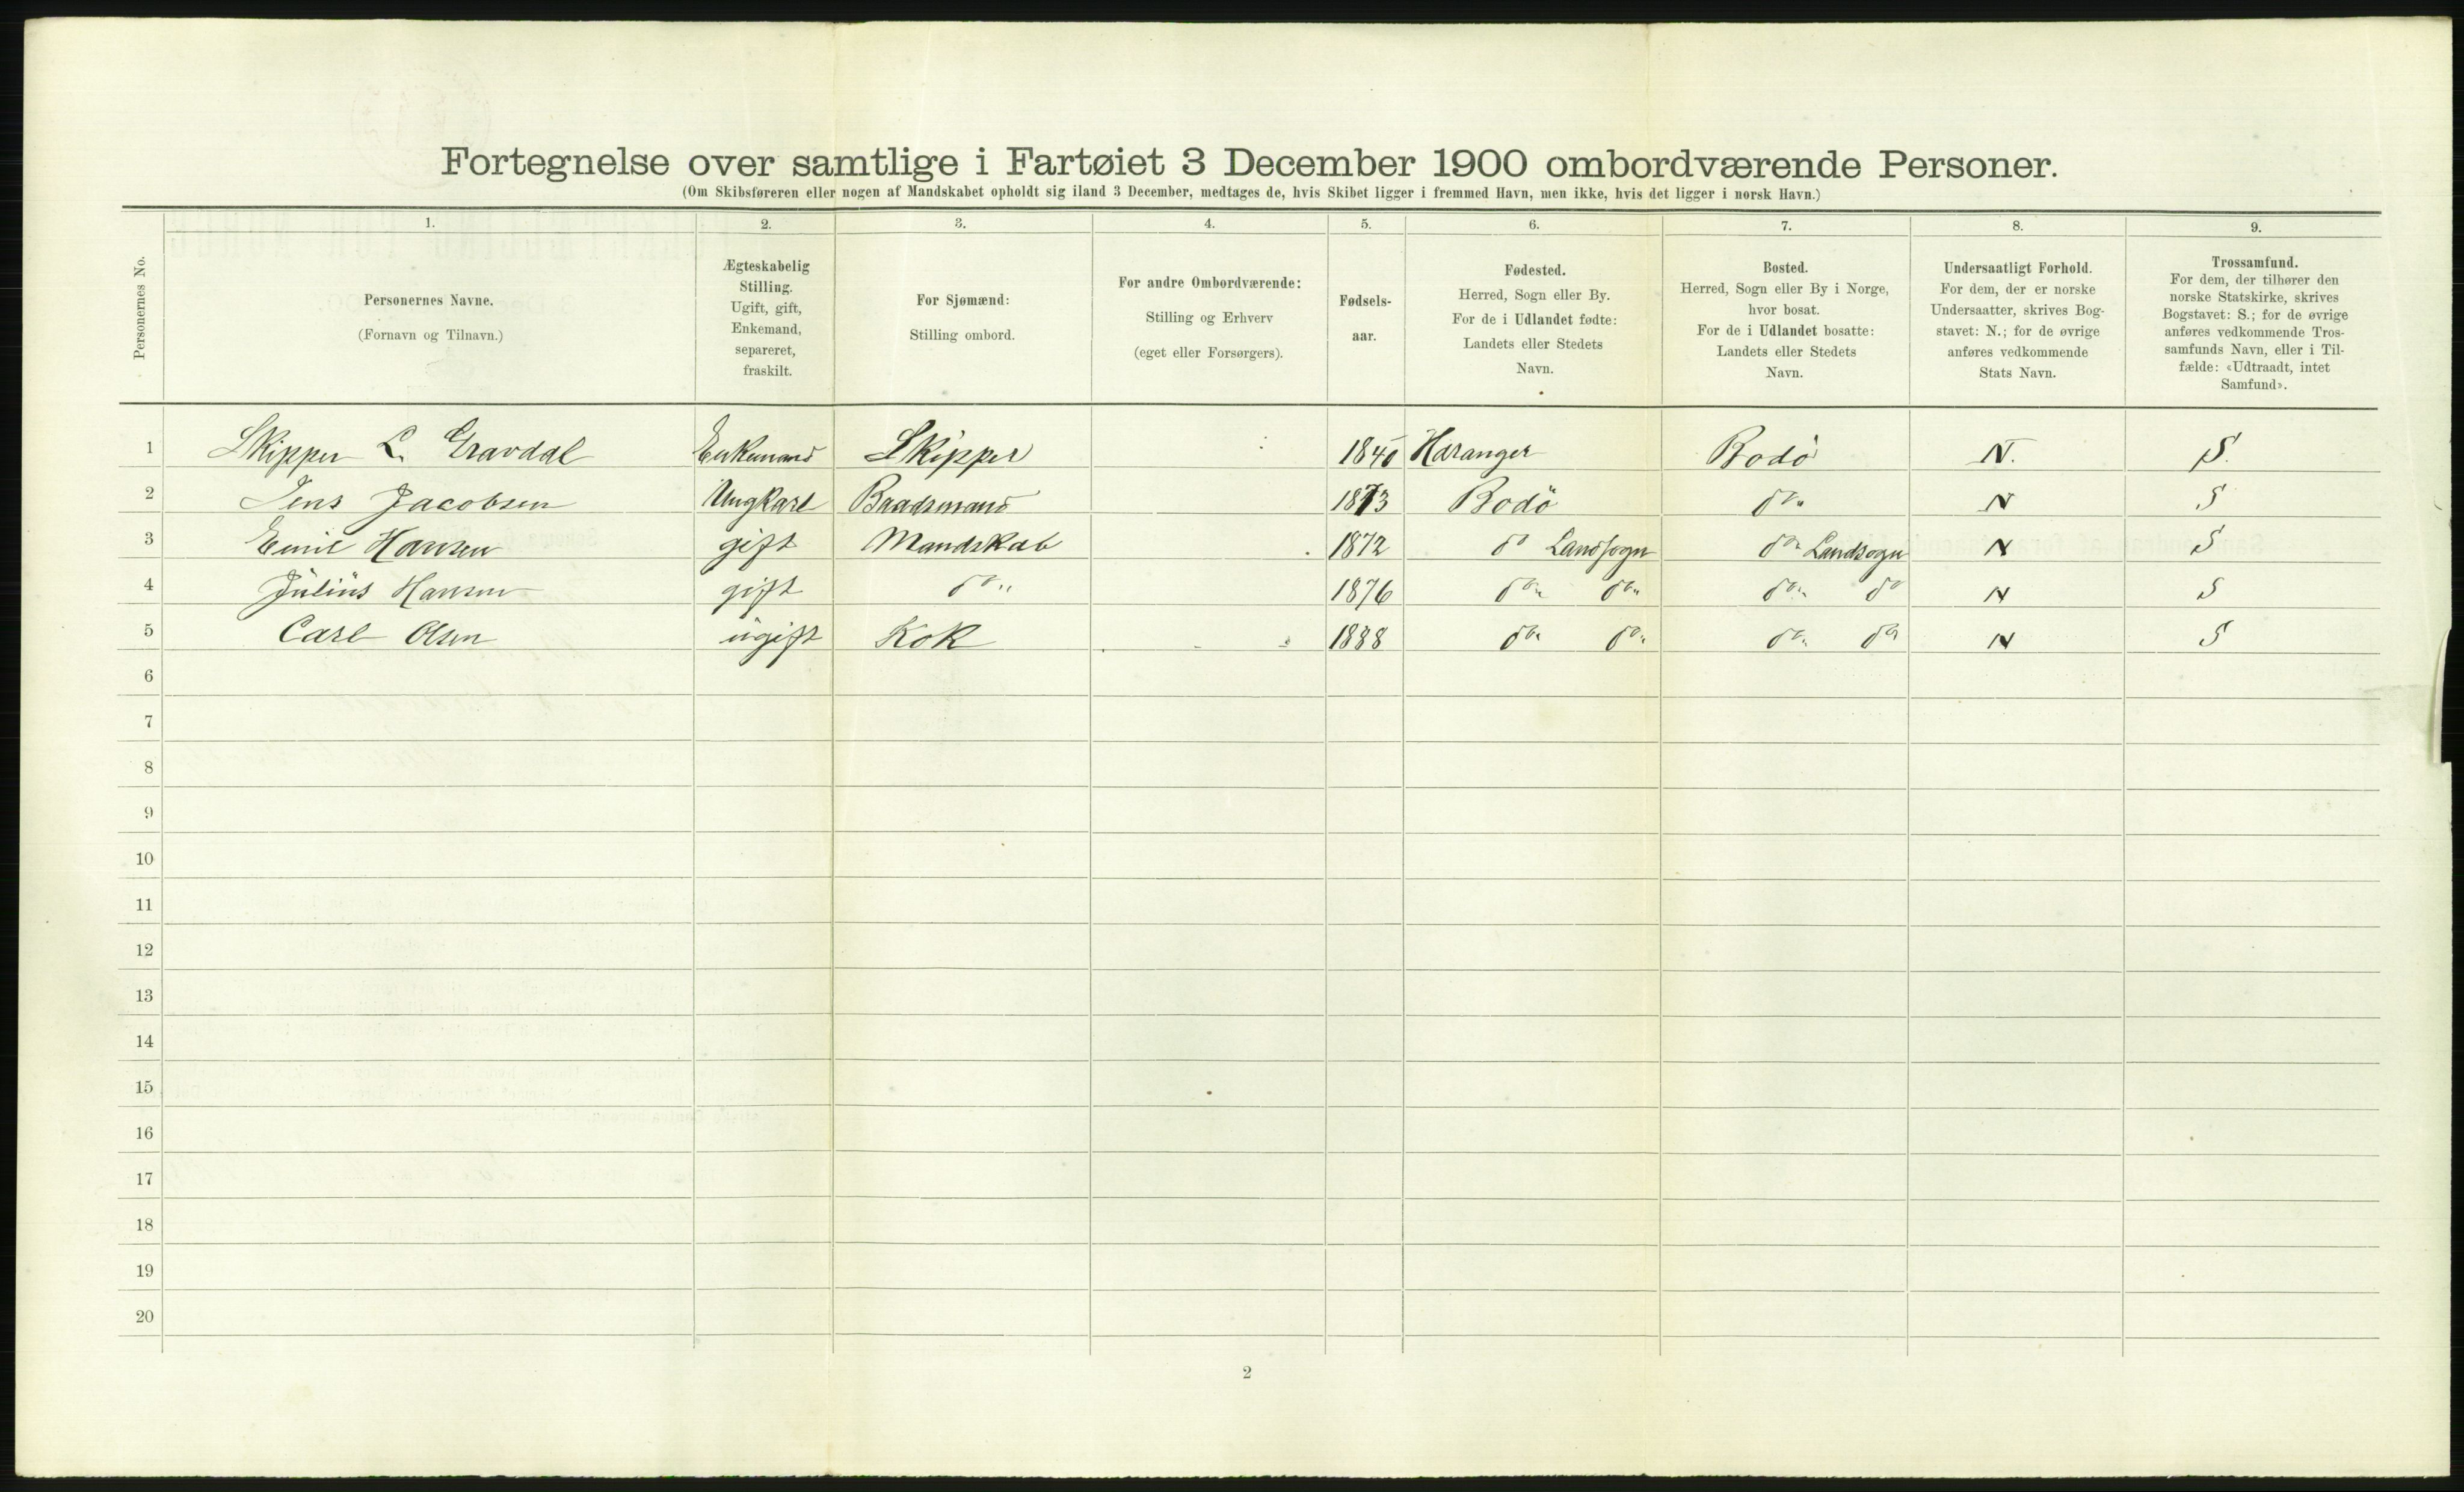 Fortegnelse over samtlige i Fartøiet 3 December 1900 ombordværende Personer.
(Om Skibsføreren eller nogen af Mandskabet opholdt sig iland 3 December, medtages de, hvis Skibet ligger i fremmed Havn, men ikke, hvis det ligger i norsk Havn.)
Personernes No.
1.
Personernes Navne.
(Fornavn og Tilnavn.)
2.
Ægteskabelig
Stilling.
Ugift, gift,
Enkemand,
separeret,
fraskilt.
3.
For Sjømænd:
Stilling ombord.
4.
For andre Ombordværende:
Stilling og Erhverv
(eget eller Forsørgers).
5.
Fødsels-
aar.
6.
Fødested.
Herred, Sogn eller By.
For de i Udlandet fødte:
Landets eller Stedets
Navn.
7.
Bosted.
Herred, Sogn eller By i Norge,
hvor bosat.
For de i Udlandet bosatte:
Landets eller Stedets
Navn.
8.
Undersaatligt Forhold.
For dem, der er norske
Undersaatter, skrives Bog-
stavet: N.; for de øvrige
anføres vedkommende
Stats Navn.
9.
Trossamfund.
For dem, der tilhører den
norske Statskirke, skrives
Bogstavet: S.; for de øvrige
anføres vedkommende Tros-
samfunds Navn, eller i Til-
fælde: «Udtraadt, intet
Samfund».
1 Skipper L. Gravdal Enkemand Skipper Haranger Bodö N. S.
2 Jens Jacobsen Ungkarl Baadsmand 1873 Bodö do N S
3 Emil Hansen gift Mandskab 1872 do Landsogn do Landsogn N S
4 Julius Hansen gift do 1876 do do do do N S
5 Carl Olsen ugift Kok 1888 do do do do N S
6
7
8
9
10
11
12
13
14
15
16
17
18
19
20
2